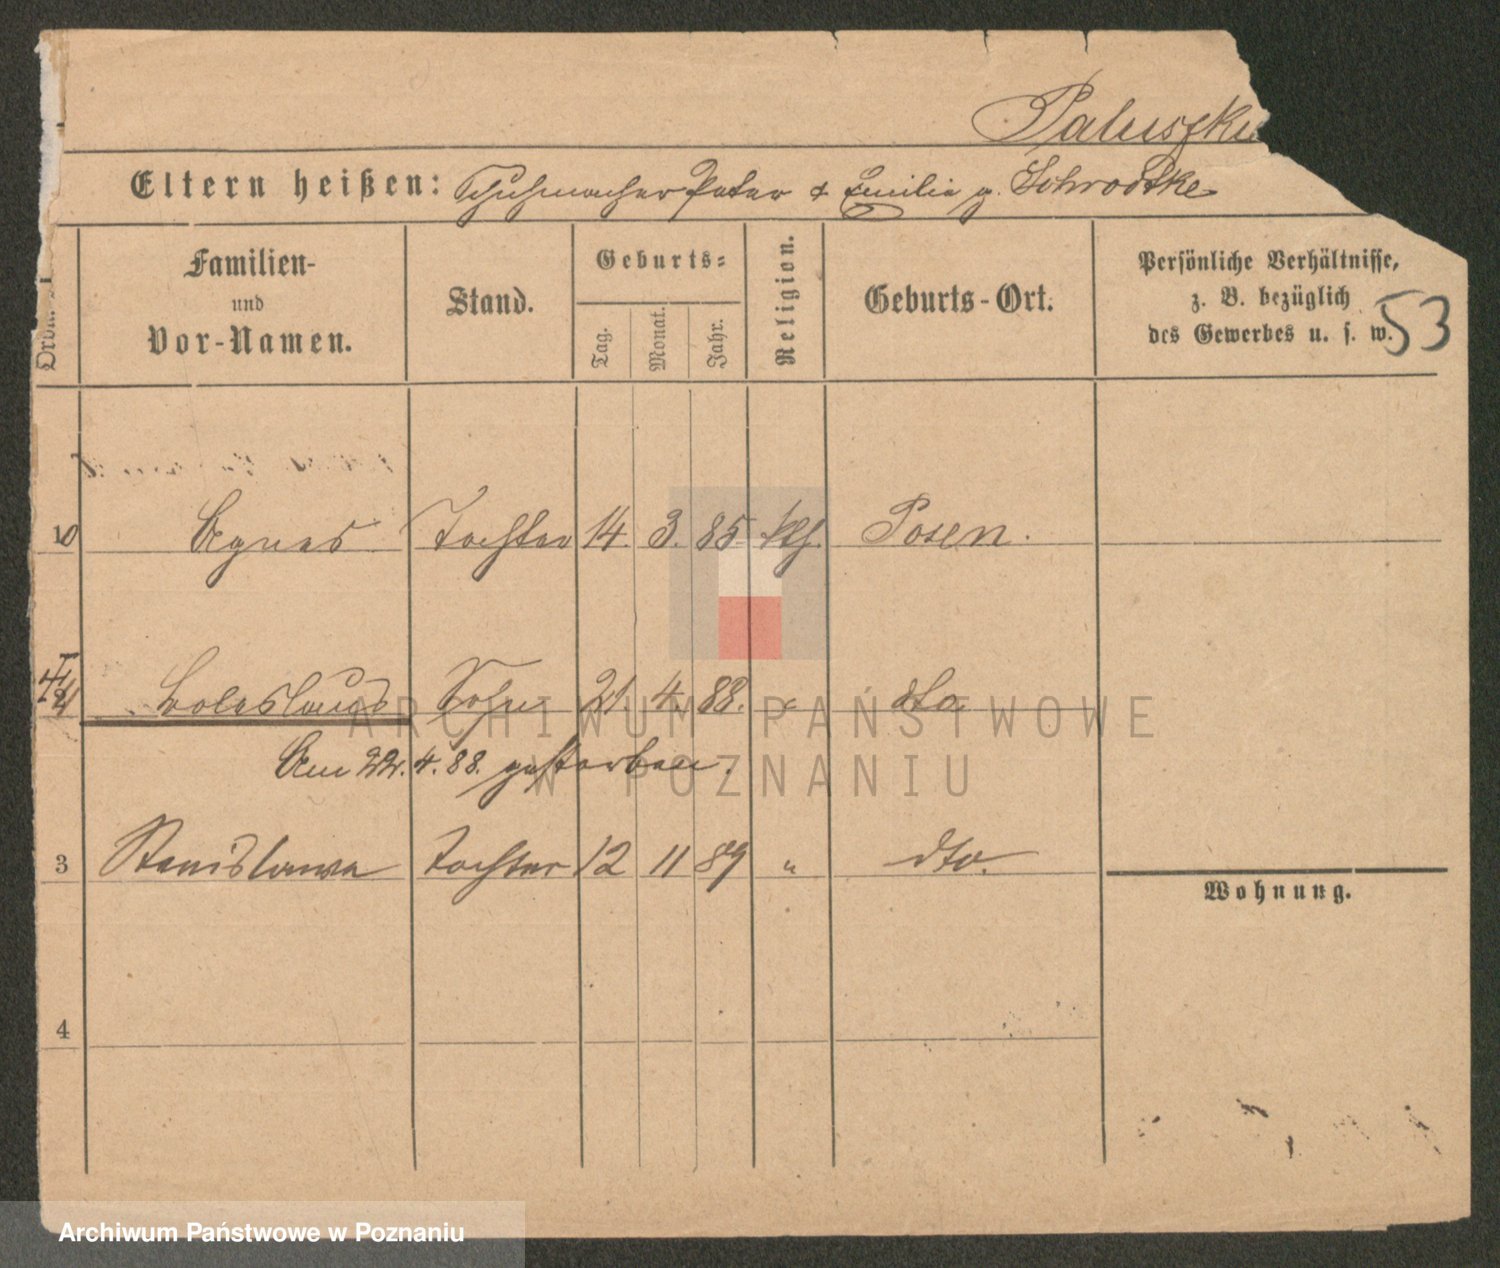 Eltern heißen: Schuhmacher Peter & Emilie g. Schrodtke
53
Familien- und Vor-Namen.
Stand.
Geburts=
Tag.
Monat.
Jahr.
Religion.
Geburts-Ort.
Persönliche Verhältnisse,
z. B. bezüglich
des Gewerbes u. s. w.
Agnes Tochter 14. 3. 85 kth. Posen.
Boleslaus Sohn 21. 4. 88. " dto
Am 22. 4. 88. gestorben.
3 Stanislawa Tochter 12 11 89 " dto.
Wohnung.
4
ARCHIWUM PAŃSTWOWE
W POZNANIU
Archiwum Państwowe w Poznaniu